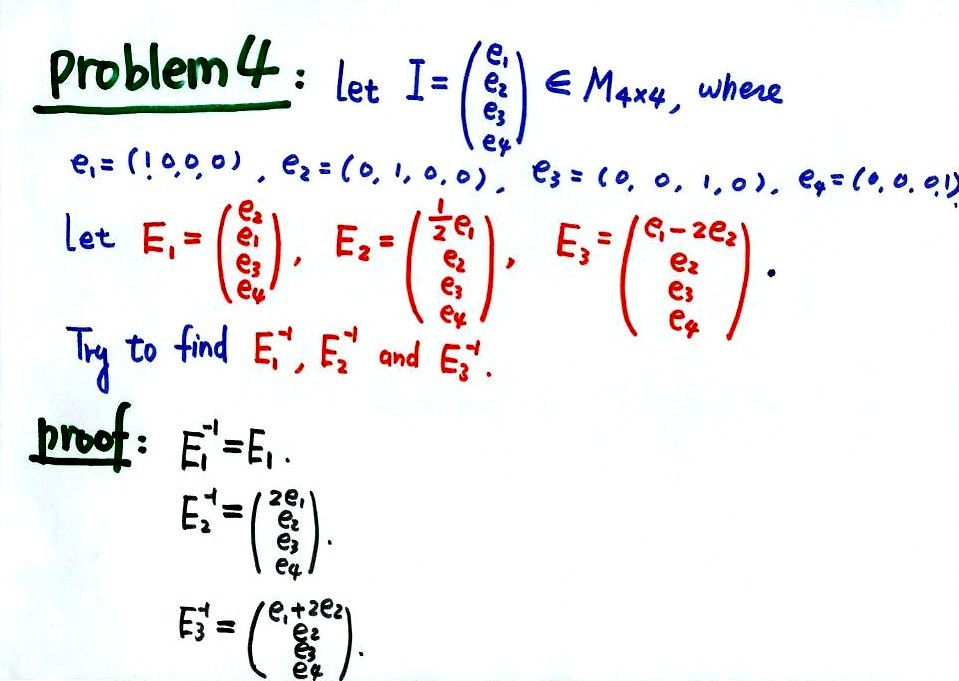 Problem 4: Let I = (e₁ e₂ e₃ e₄) ∈ M₄ₓ₄, where
e₁ = (1 0,0,0), e₂ = (0, 1, 0, 0), e₃ = (0, 0, 1, 0), e₄ = (0, 0. 0 1)
Let E₁ = (e₂ e₁ e₃ e₄), E₂ = (½e₁ e₂ e₃ e₄), E₃ = (e₁-2e₂ e₂ e₃ e₄).
Try to find E₁⁻¹, E₂⁻¹ and E₃⁻¹.
proof: E₁⁻¹ = E₁.
E₂⁻¹ = (2e₁ e₂ e₃ e₄).
E₃⁻¹ = (e₁+2e₂ e₂ e₃ e₄).